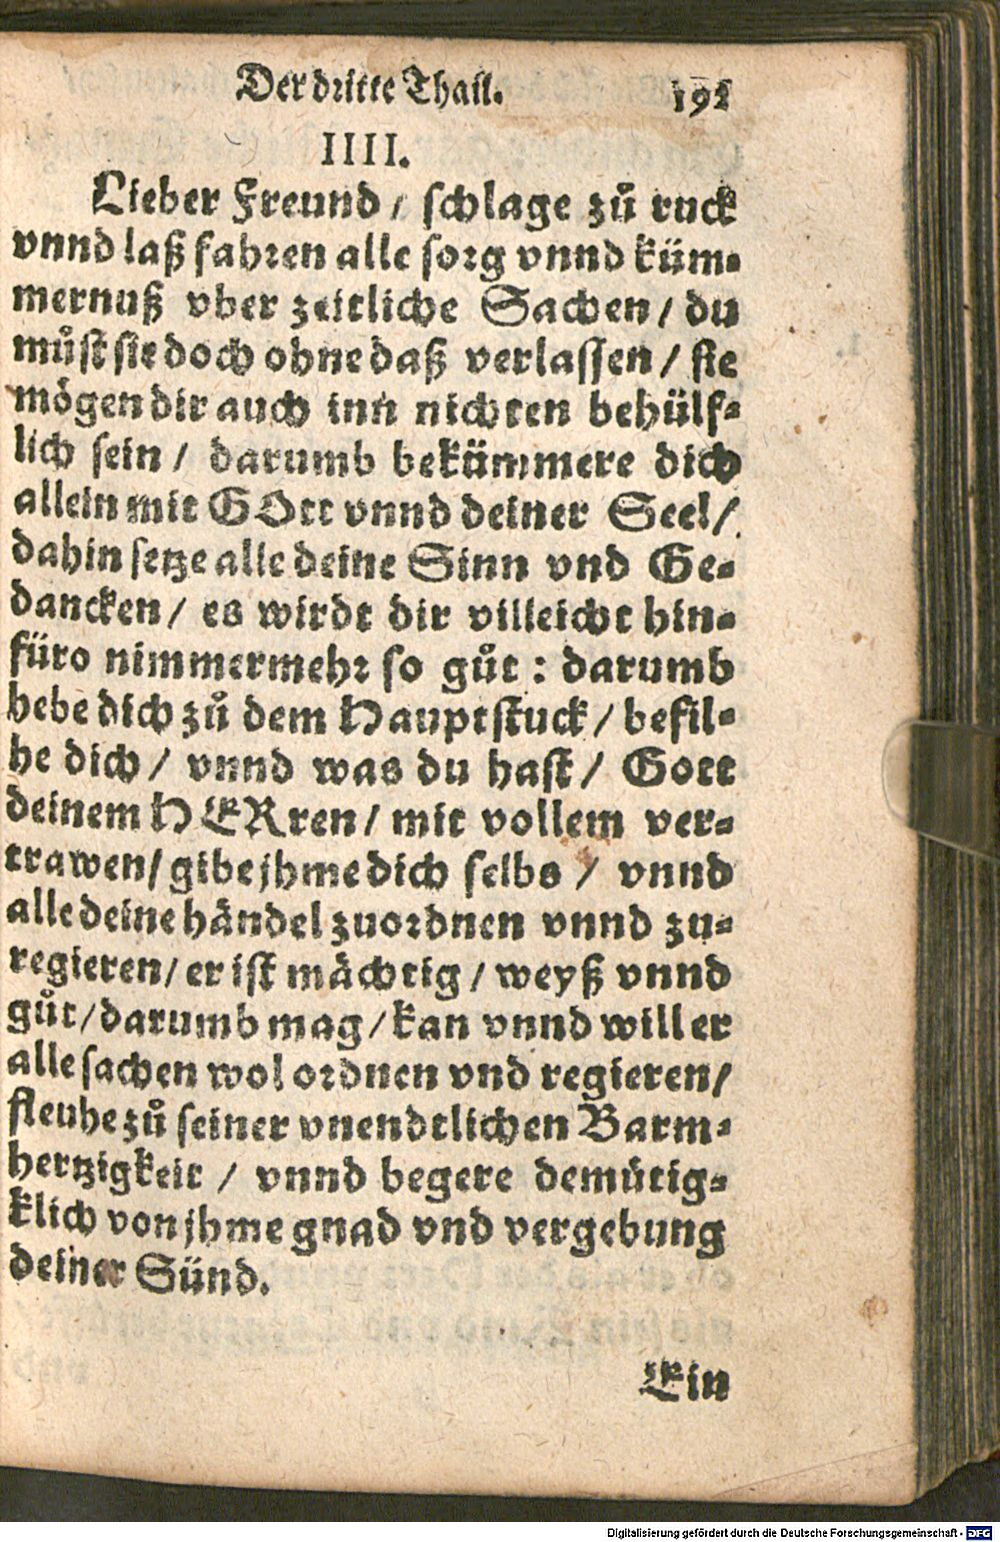 Der dritte Thail. 192
IIII.
Lieber Freund / schlage zů ruck
vnnd laß fahren alle sorg vnnd küm-
mernuß vber zeitliche Sachen / du
můst sie doch ohne daß verlassen / sie
mögen dir auch inn nichten behülf-
lich sein / darumb bekümmere dich
allein mit GOtt vnnd deiner Seel /
dahin setze alle deine Sinn vnd Ge-
dancken / es wirdt dir villeicht hin-
füro nimmermehr so gůt : darumb
hebe dich zů dem Hauptstuck / befil-
he dich / vnnd was du hast / Gott
deinem HERren / mit vollem ver-
trawen / gibe jhme dich selbs / vnnd
alle deine händel zuordnen vnnd zu-
regieren / er ist mächtig / weyß vnnd
gůt / darumb mag / kan vnnd will er
alle sachen wol ordnen vnd regieren /
fleuhe zů seiner vnendtlichen Barm-
hertzigkeit / vnnd begere demütig-
klich von jhme gnad vnd vergebung
deiner Sünd.
Ein
Digitalisierung gefördert durch die Deutsche Forschungsgemeinschaft - DFG